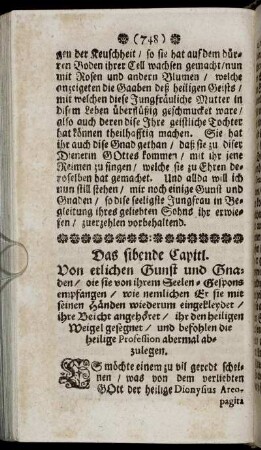 (748)
gen der Keuschheit / so sie hat auf dem dür-
ren Boden ihrer Cell wachsen gemacht / nun
mit Rosen und andern Blumen / welche
anzeigeten die Gaaben deß heiligen Geists /
mit welchen diese Jungfräuliche Mutter in
disem Leben überflüssig geschmucket ware /
also auch deren dise Ihre geistliche Tochter
hat können theilhafftig machen. Sie hat
ihr auch dise Gnad gethan / daß sie zu diser
Dienerin GOttes kommen / mit ihr jene
Reimen zu singen / welche sie zu Ehren de-
roselben hat gemachet. Und allda will ich
nun still stehen / mir noch einige Gunst und
Gnaden / so dise seeligste Jungfrau in Be-
gleitung ihres geliebten Sohns ihr erwie-
sen / zuerzehlen vorbehaltend.
Das sibende Capitl.
Von etlichen Gunst und Gna-
den / die sie von ihrem Seelen-Gespons
empfangen / wie nemlichen Er sie mit
seinen Händen wiederum eingekleydet /
ihre Beicht angehöret / ihr den heiligen
Weigel gesegnet / und befohlen die
heilige Profession abermal ab-
zulegen.
ES möchte einem zu vil geredt schei-
nen / was von dem verliebten
GOtt der heilige Dionysius Areo-
pagita